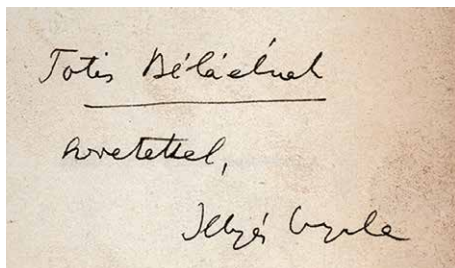 Totis Béláéknak
szeretettel,
Illyés Gyula